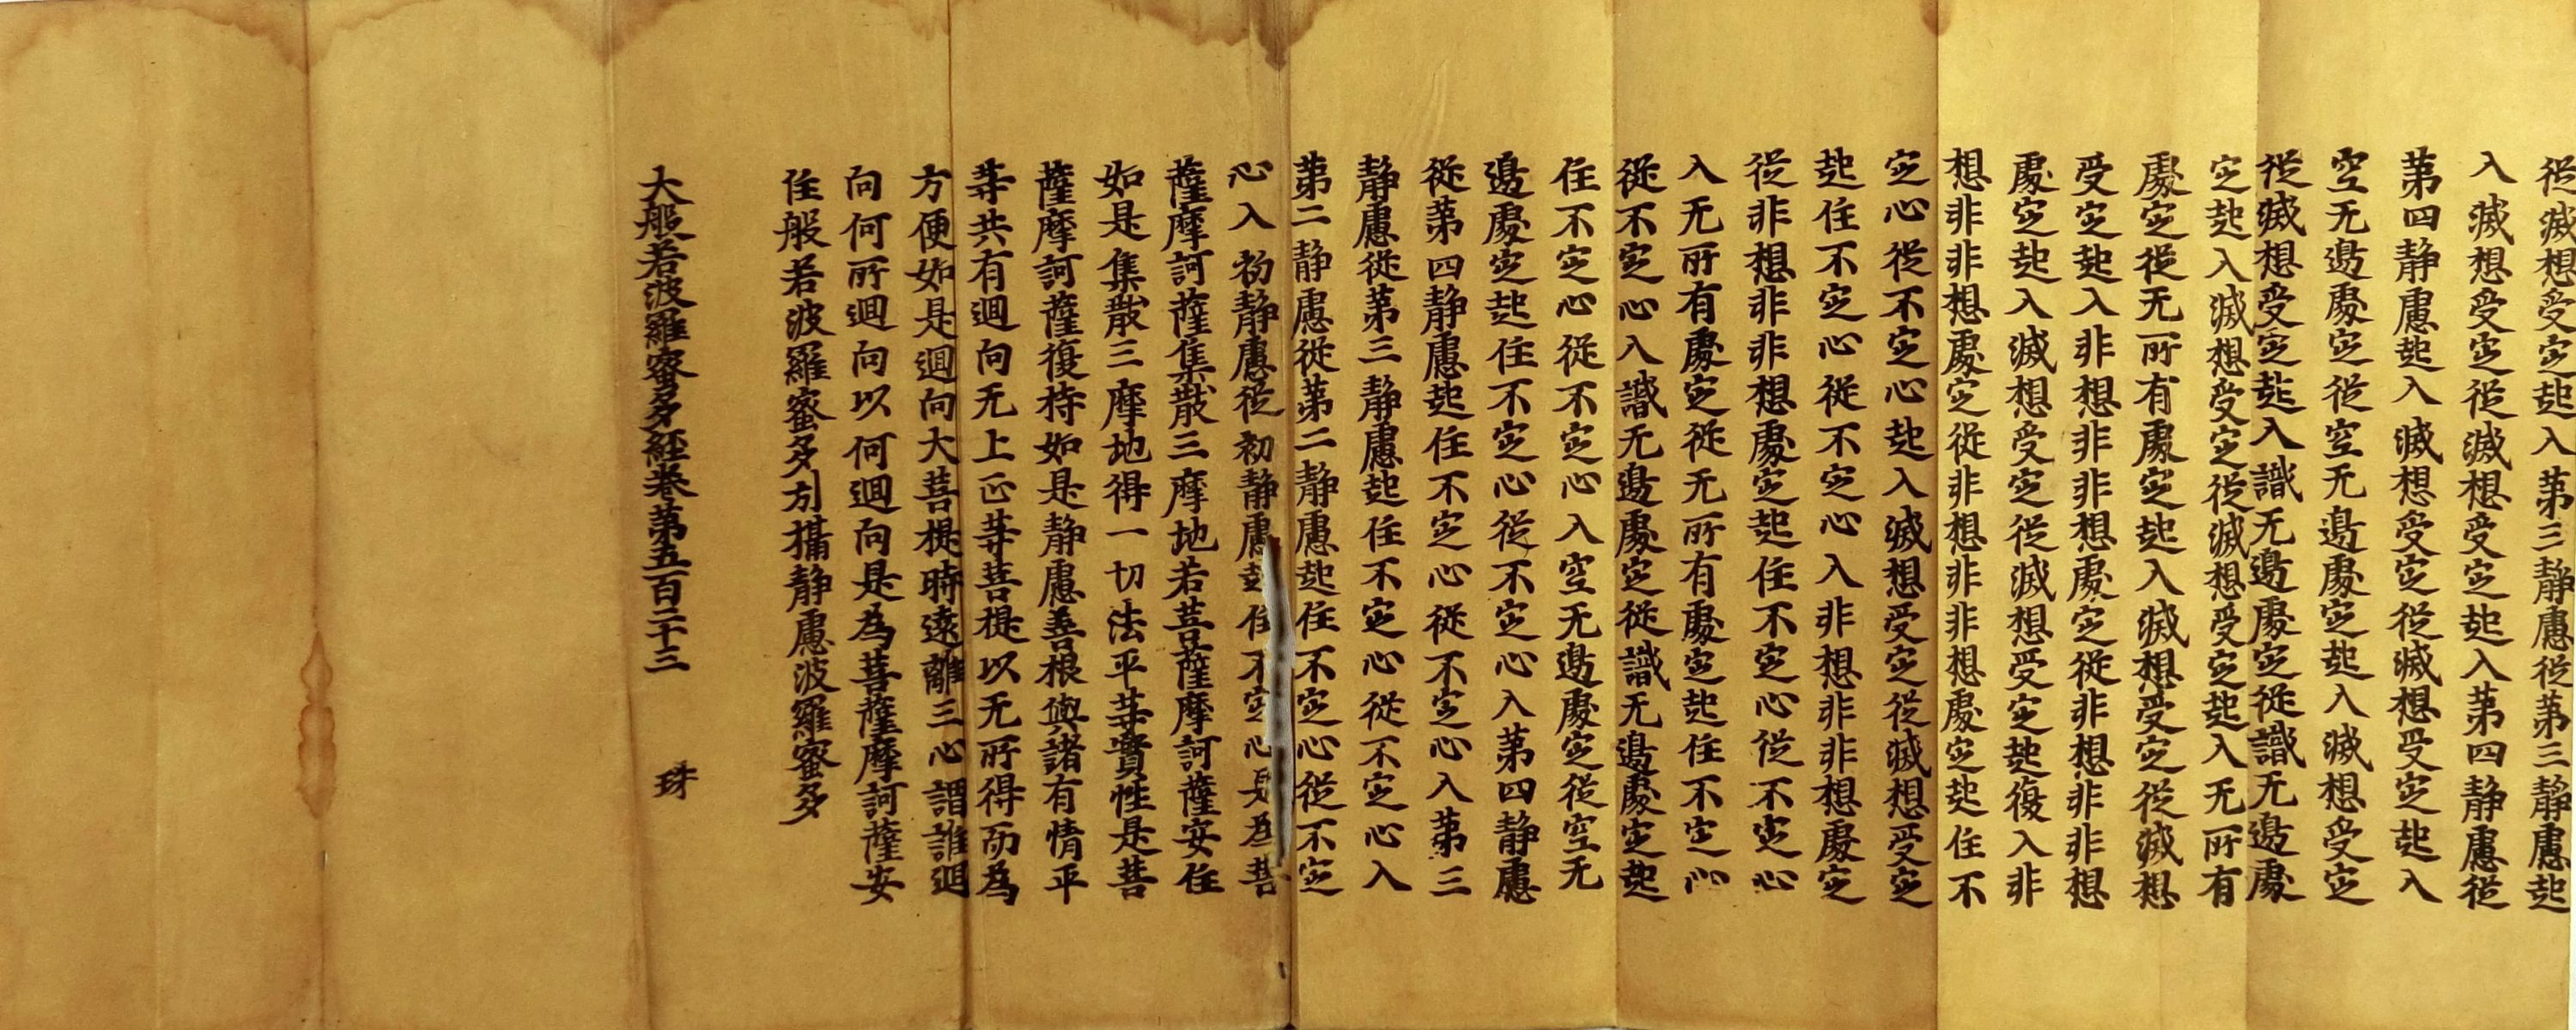 從滅想受定起入第三靜慮從第三靜慮起
入滅想受定從滅想受定起入第四靜慮從
第四靜慮起入滅想受定從滅想受定起入
空无邊處定從空无邊處定起入滅想受定
從滅想受定起入識无邊處定從識无邊處
定起入滅想受定從滅想受定起入无所有
處定從无所有處定起入滅想受定從滅想
受定起入非想非非想處定從非想非非想
處定起入滅想受定從滅想受定起復入非
想非非想處定從非想非非想處定起住不
定心從不定心起入滅想受定從滅想受定
起住不定心從不定心入非想非非想處定
從非想非非想處定起住不定心從不定心
入无所有處定從无所有處定起住不定心
從不定心入識无邊處定從識无邊處定起
住不定心從不定心入空无邊處定從空无
邊處定起住不定心從不定心入第四靜慮
從第四靜慮起住不定心從不定心入第三
靜慮從第三靜慮起住不定心從不定心入
第二靜慮從第二靜慮起住不定心從不定
心入初靜慮從初靜慮起住不定心是為菩
薩摩訶薩集散三摩地若菩薩摩訶薩安住
如是集散三摩地得一切法平等實性是菩
薩摩訶薩復持如是靜慮善根與諸有情平
等共有迴向无上正等菩提以无所得而為
方便如是迴向大菩提時遠離三心謂誰迴
向何所迴向以何迴向是為菩薩摩訶薩安
住般若波羅蜜多引攝靜慮波羅蜜多
大般若波羅蜜多經卷第五百二十三 珠